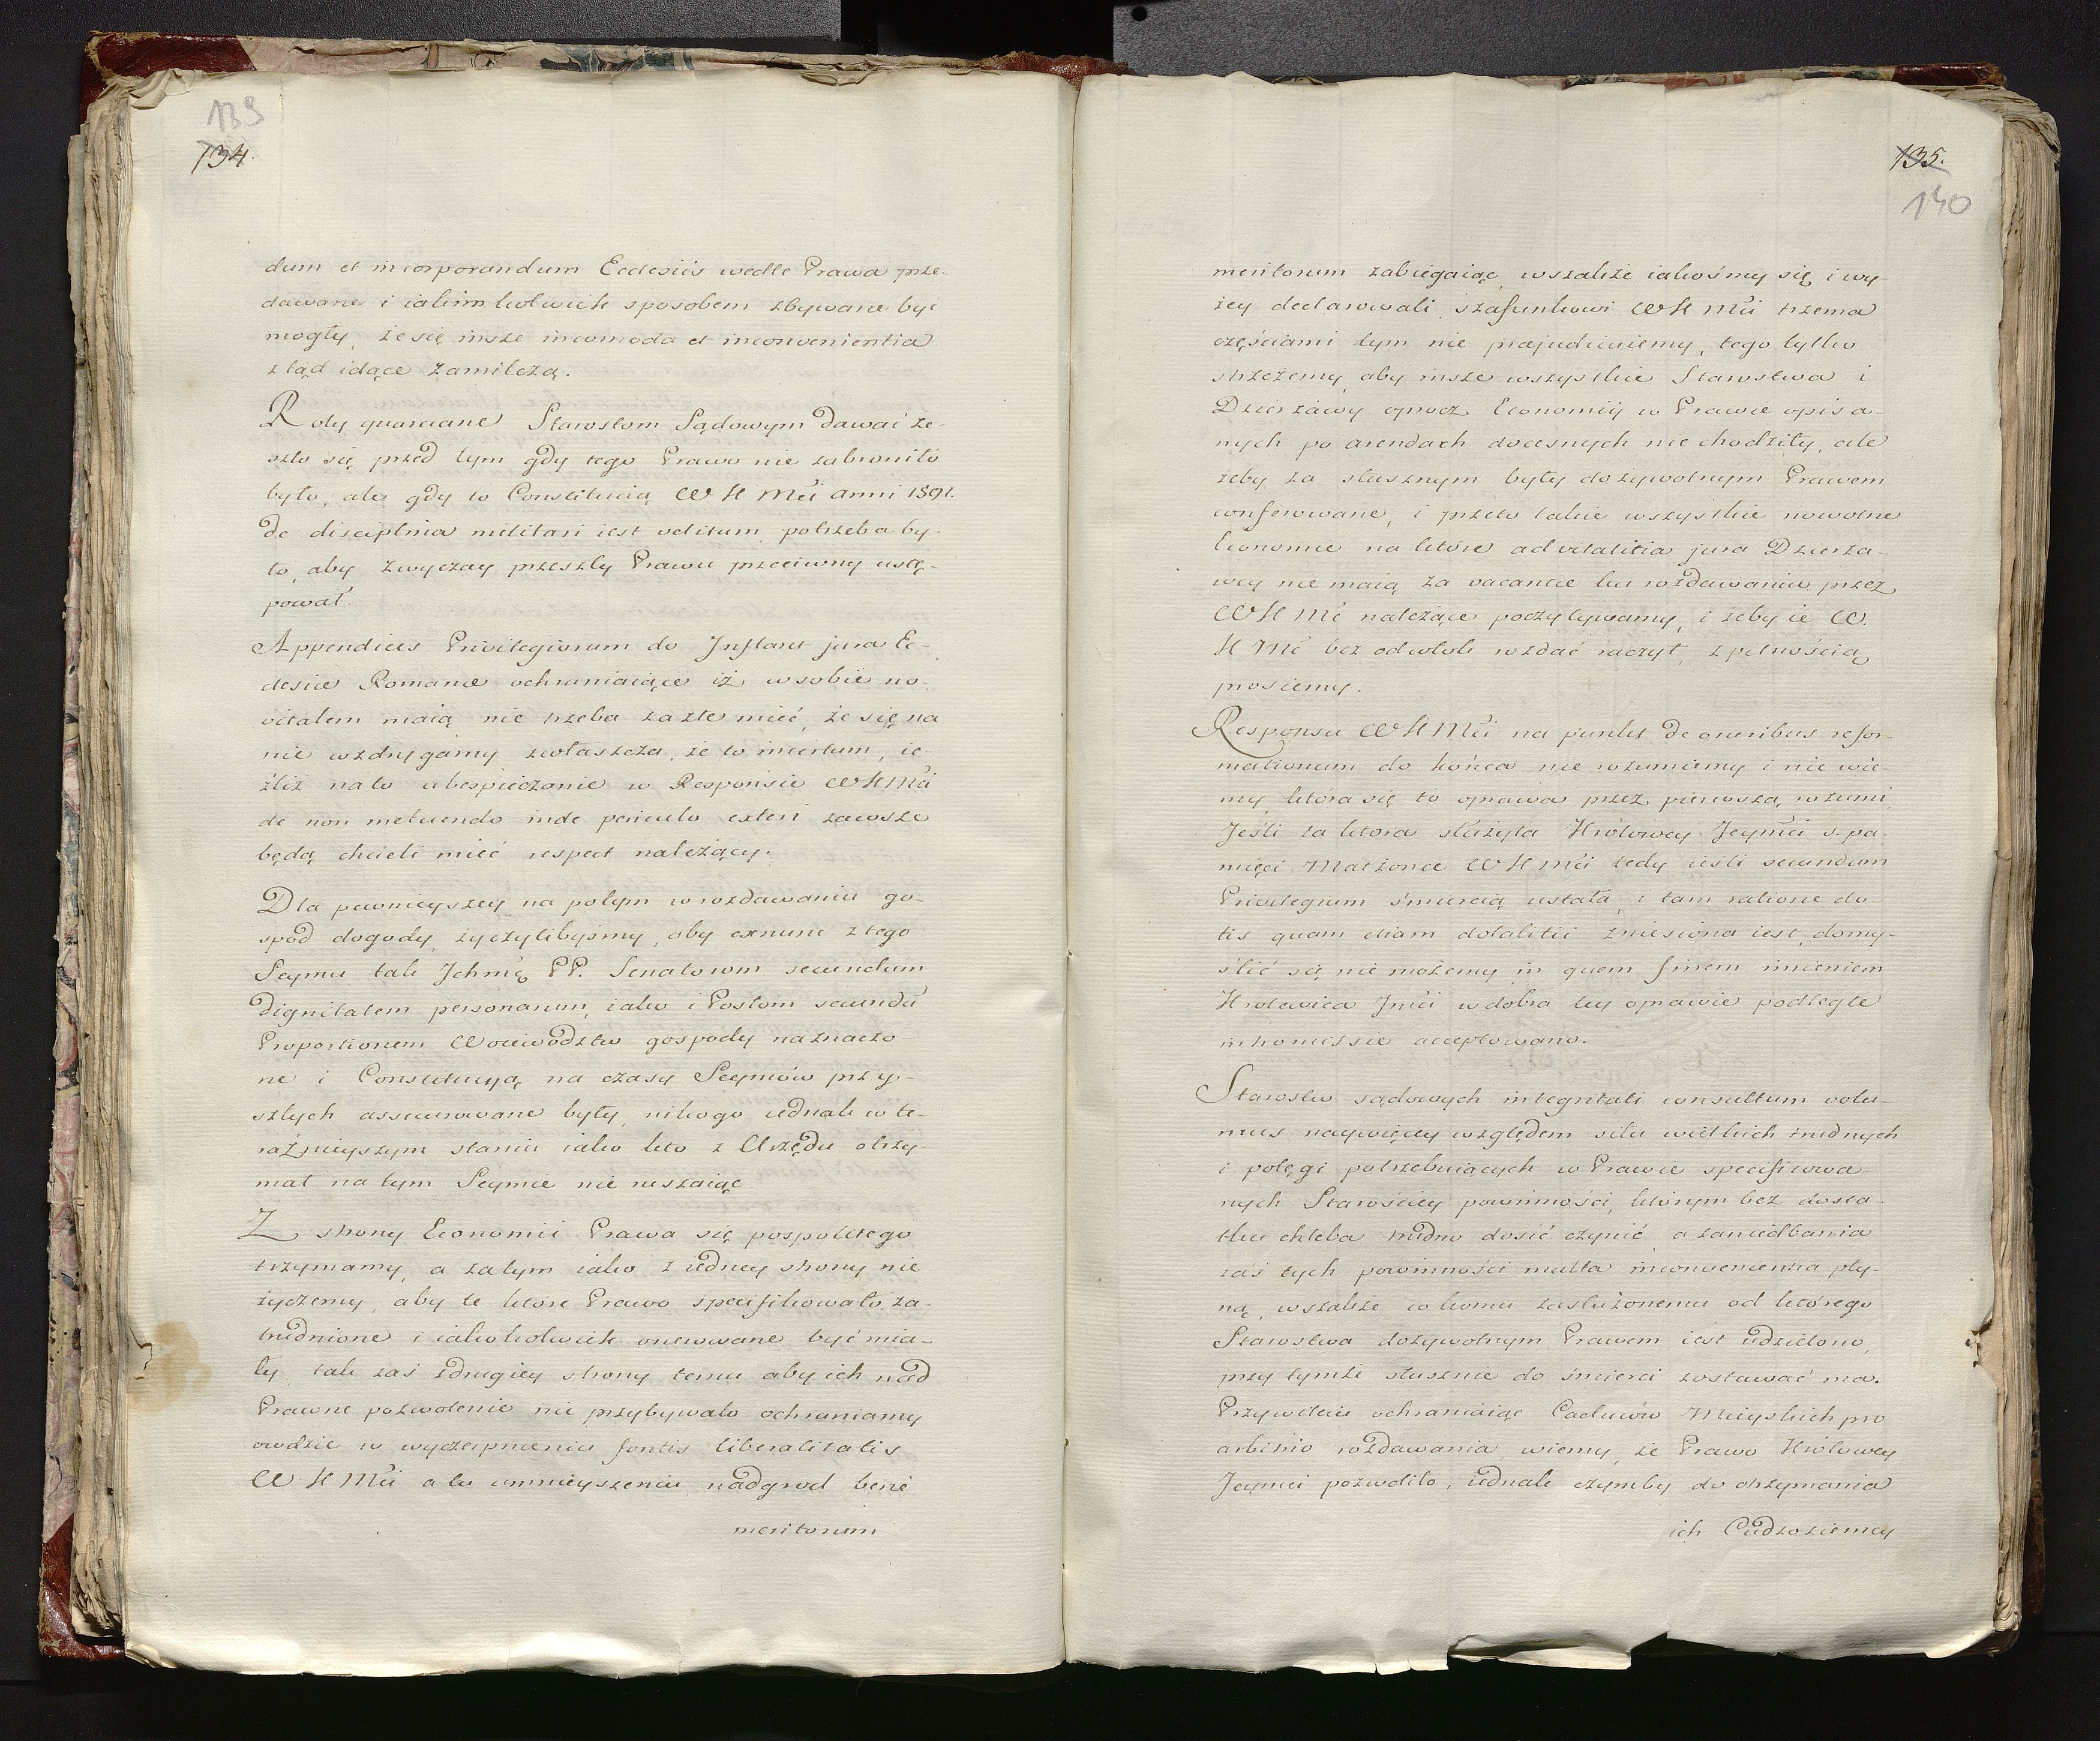 139
134.
dum et incorporandum Ecclesiis wedle Prawa prze-
dawane i iakimkolwiek sposobem zbywane być
mogły, że się insze incomoda et inconvenientia
ztąd idące zamilczą.
Roty quarciane Starostom Sądowym dawać ze-
szło się przed tym gdy tego Prawo nie zabroniło
było, ale gdy to Constitucią WKMći anni 1591.
de disciplina militari iest vetitum, potrzeba by-
ło, aby zwyczay przeszły Prawu przeciwny ustę-
pował.
Appendices Privilegiorum do Inflant jura Ec-
clesiæ Romanæ ochraniaiące iż w sobie no-
vitatem maią nie trzeba za złe mieć, że się na
nie wzdrygamy zwłaszcza, że to incertum, ie-
źliż na to ubespieczenie w Responsie WKMći
de non metuendo inde periculo exteri zawsze
będą chcieli mieć respect należący.
Dla pewnieyszey na potym w rozdawaniu go-
spod dogody, życzylibyśmy, aby exnunc z tego
Seymu tak Ichmć PP. Senatorom secundum
dignitatem personarum, iako i Posłom secundū
Proportionem Woiewodztw gospody naznaczo-
ne i Constitucyą na czasy Seymów przy-
szłych assecurowane były, nikogo iednak w te-
raźnieyszym staniu iako kto z Urzędu otrzy-
mał na tym Seymie nie ruszaiąc
Z strony Economii Prawa się pospolitego
trzymamy, a zatym iako z iedney strony nie
życzemy, aby te które Prawo specifikowało, za-
trudnione i iakokolwiek onerowane być mia-
ły, tak zaś z drugiey strony temu aby ich nad
Prawne pozwolenie nie przybywało ochraniamy
owdzie w wyczerpnieniu fontis liberalitatis
WKMći a tu umnieyszeniu nadgrod bene
meritorum
135.
140
meritorum zabiegaiąc, wszakże iakośmy się i wy
żey declarowali, szafunkowi WKMći trzema
częściami tym nie præjudiciemy, tego tylko
strzeżemy, aby insze wszystkie Starostwa i
Dzierżawy oprocz Economiy w Prawie opisa-
nych po arendach docesnych nie chodziły, ale
żeby za słusznym były dożywotnym Prawem
conferowane, i przeto takie wszystkie nowotne
Economie na które ad vitalitia jura Dzierża-
wcy nie maią za vacancie ku rozdawaniu przez
WKMć należące poczytywamy, i żeby ie W.
KMć bez odwłok rozdać raczył, z pilnością
prosiemy.
Responsu WKMći na punkt de oneribus refor-
mationum do końca nie rozumiemy i nie wie-
my, która się to oprawa przez pierwszą rozumi
Jeśli ta która służyła Krolowey Jeymći s. pa-
mięci Małżonce WKMći tedy ieśli secundum
Privilegium śmiercią ustała, i tam ratione do-
tis quam etiam dotalitii zniesiona iest, domy-
ślić się nie możemy, in quem finem imieniem
Krolewica Jmći w dobra tey oprawie podległe
inkomissie acceptowano.
Starostw sądowych integritati consultum volu-
mus naywięcey względem siłu wielkich trudnych
i potęgi potrzebuiących w Prawie specificowa-
nych Starościey powinności, którym bez dosta-
tku chleba trudno dosić czynić, a zaniedbania
zaś tych powinności multa inconvenientia pły-
ną, wszakże co komu zasłużonemu od którego
Starostwa dożywotnym Prawem iest udzielono,
przy tymże słusznie do śmierci zostawać ma.
Przywileiu ochraniaiąc Caduców Mieyskich pro
arbitrio rozdawania, wiemy, że Prawo Królowey
Jeymci pozwoliło, iednak czymby do otrzymania
ich Cudzoziemcy